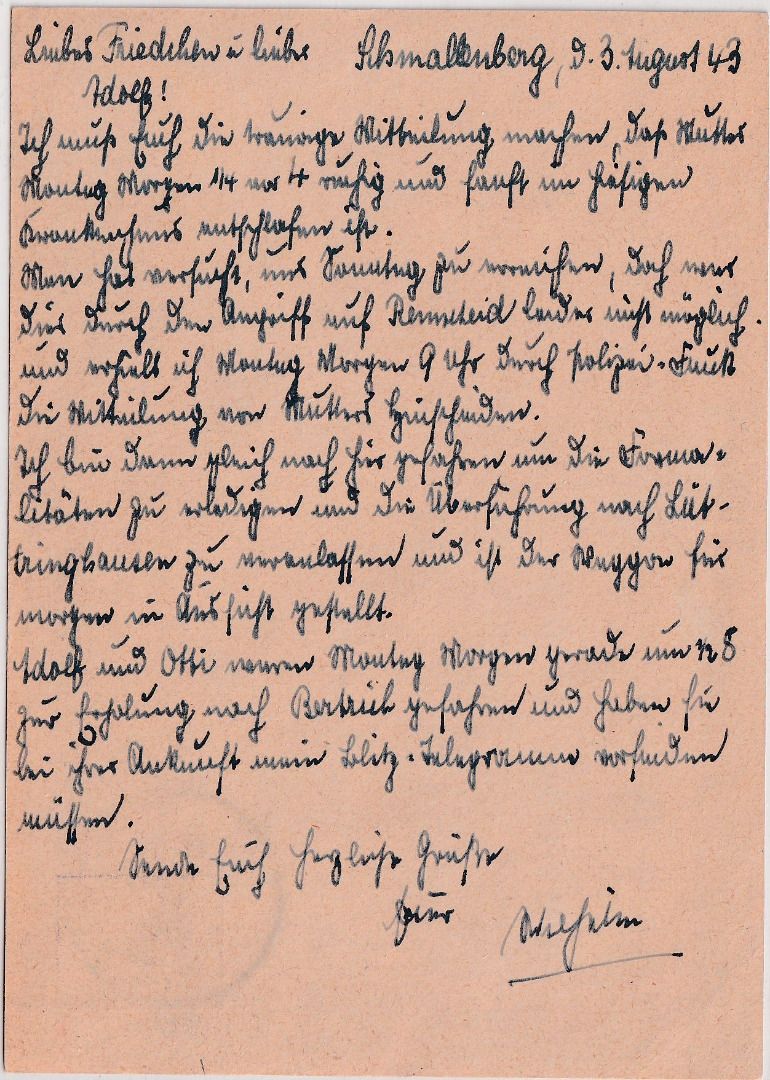 Liebes Friedchen u. lieber Schmallenberg, d. 3. August 43
Adolf!
Ich muß Euch die traurige Mitteilung machen, daß Mutter
Montag Morgen 1/4 vor 4 ruhig und sanft im hiesigen
Krankenhaus entschlafen ist.
Man hat versucht, uns Sonntag zu erreichen, doch war
dies durch den Angriff auf Remscheid leider nicht möglich.
und erhielt ich Montag Morgen 9 Uhr durch Polizei-Funk
die Mitteilung von Mutters Hinscheiden.
Ich bin dann gleich nach hier gefahren um die Forma-
litäten zu erledigen und die Überführung nach Lüt-
tringhausen zu veranlassen und ist der Waggon für
morgen in Aussicht gestellt.
Adolf und Otti waren Montag Morgen gerade um 1/2 8
zur Erholung nach Bertrich gefahren und haben sie
bei ihrer Ankunft mein Blitz-Telegramm vorfinden
müssen.
Sende Euch herzliche Grüße
Euer Wilhelm